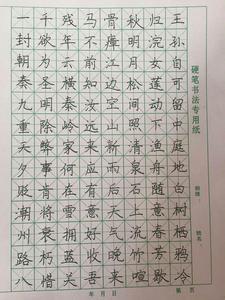 一封朝奏九重天夕贬潮州路八
千欲为圣明除弊事肯将衰朽惜
残年云横秦岭家何在雪拥蓝关
马不前知汝远来应有意好收吾
骨瘴江边空山新雨后天气晚来
秋明月松间照清泉石上流竹喧
归浣女莲动下渔舟随意春芳歇
王孙自可留中庭地白树栖鸦冷
硬笔书法专用纸
姓名
年 月 日 第 页